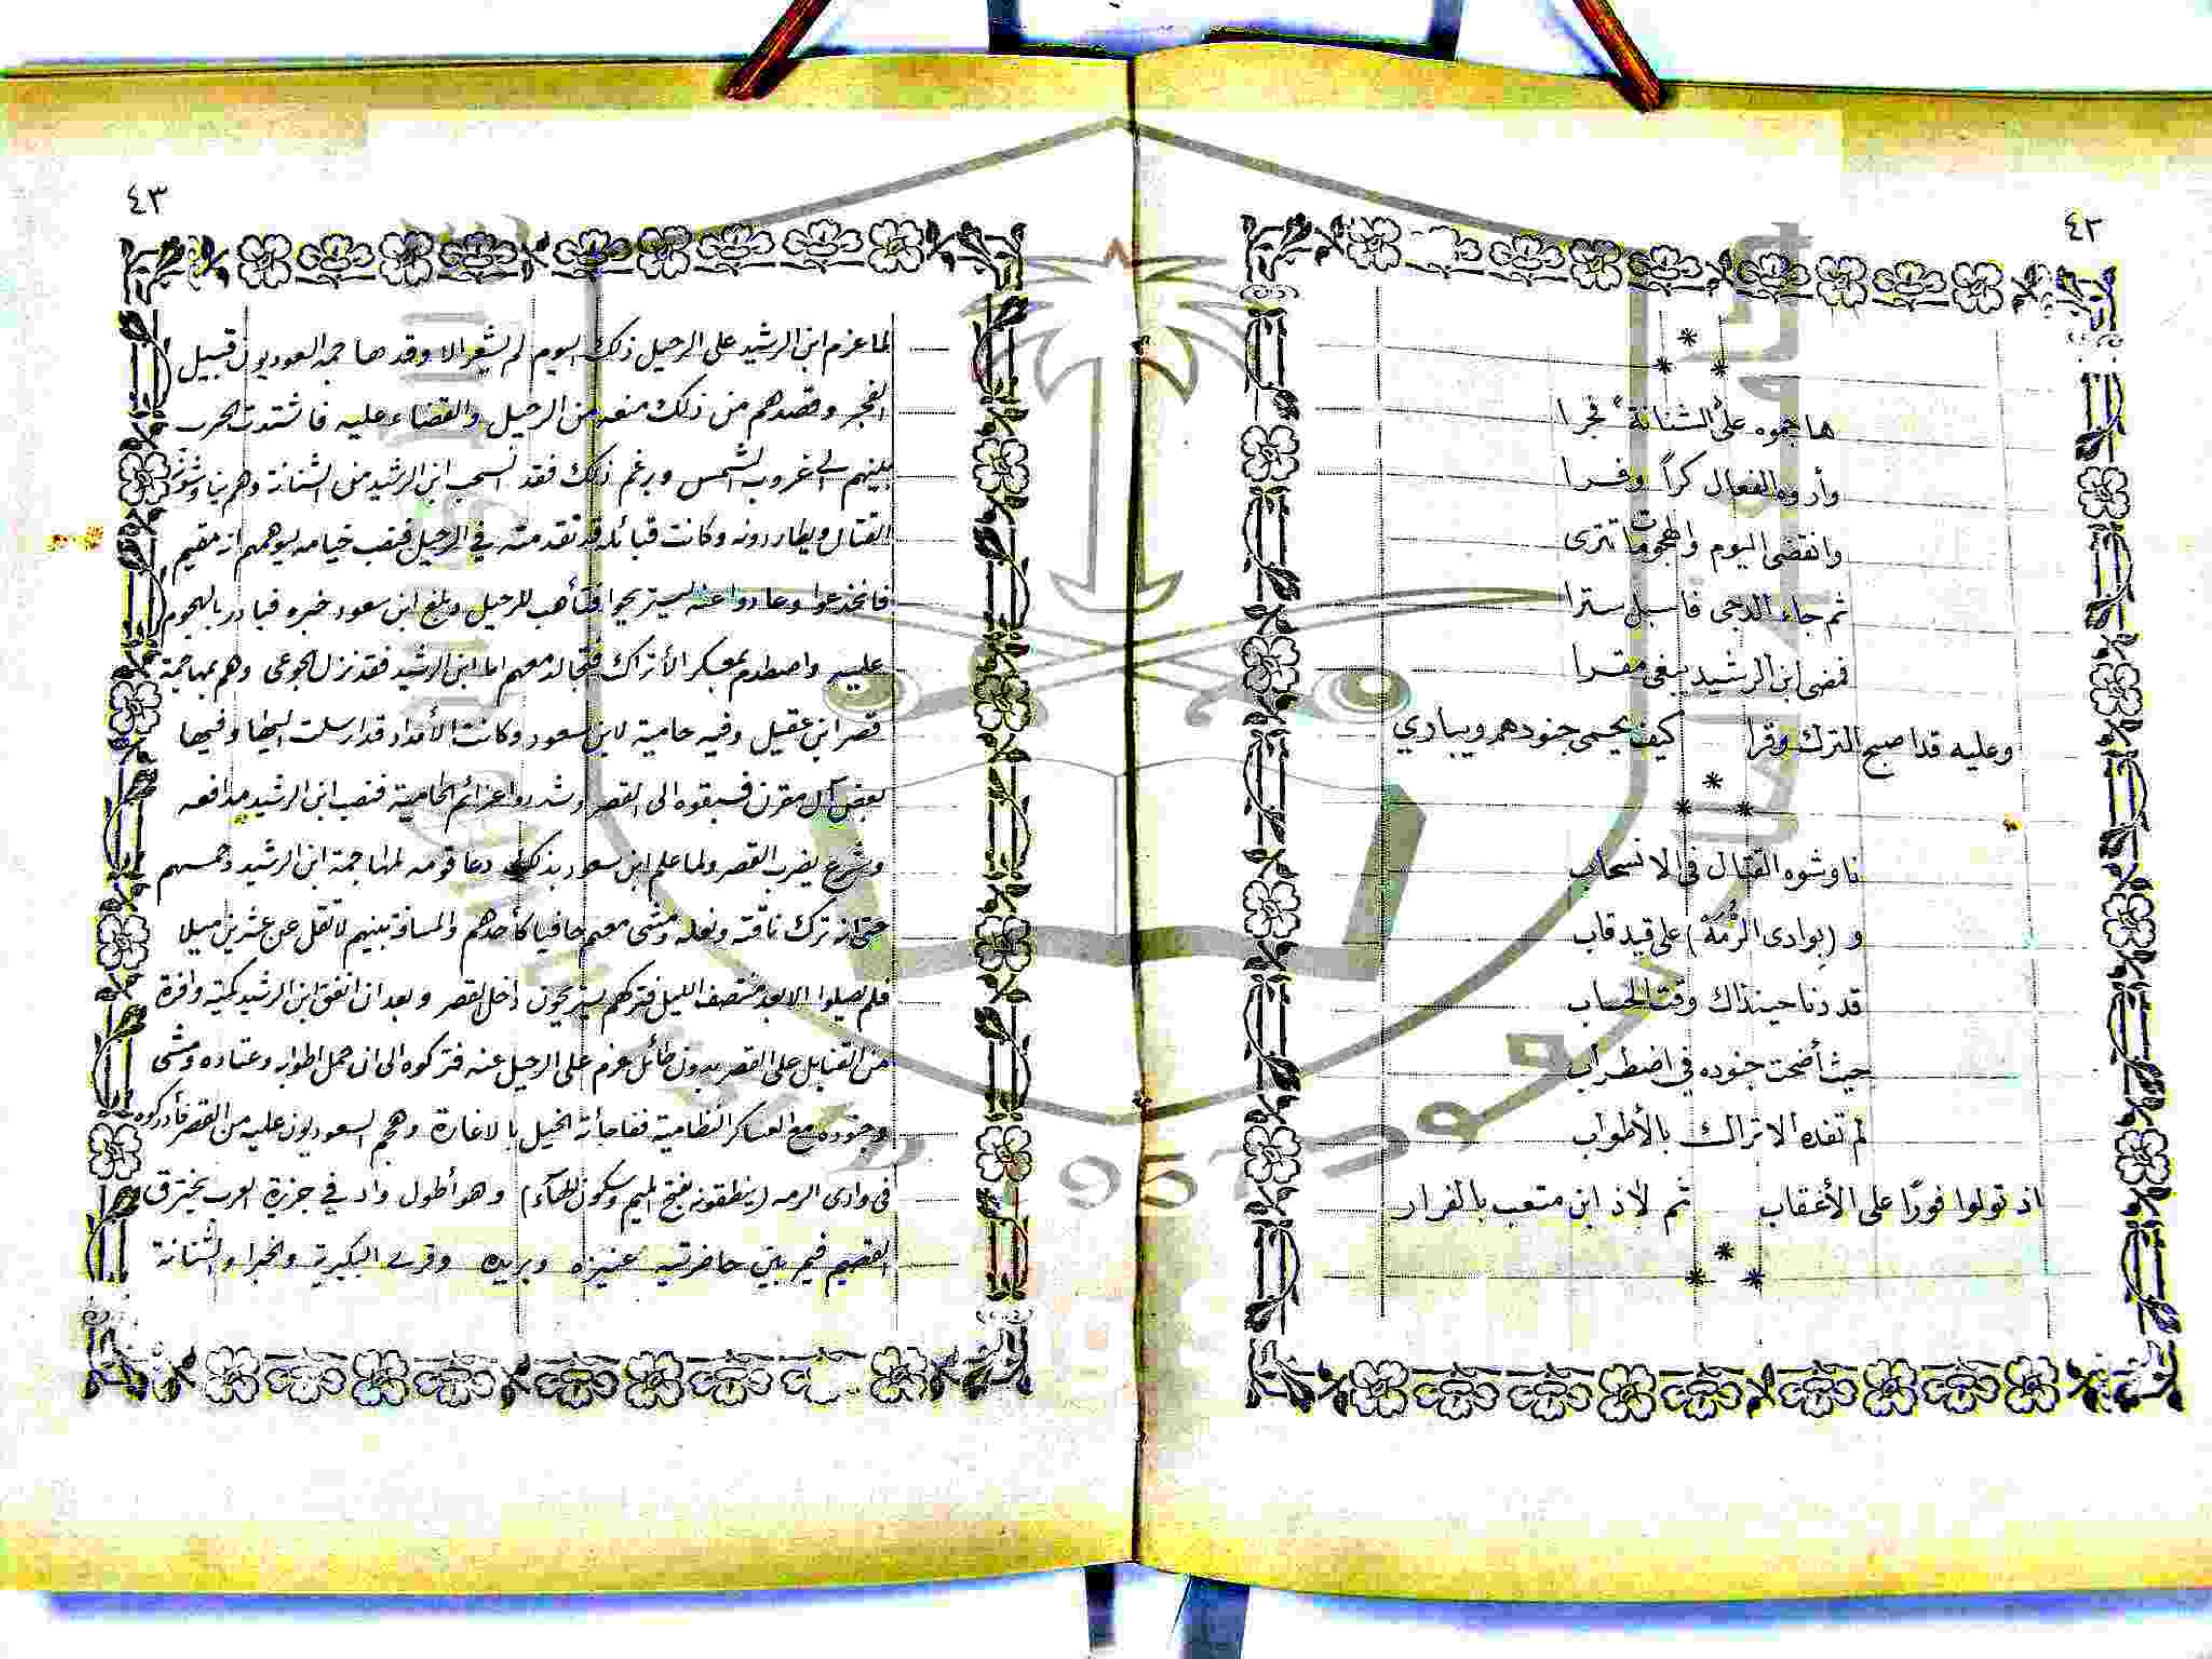 ٤٢
* * *
هاجموه على "الشنانة" فجرا
وأروه الفعال كراً وفرا
وانقضى اليوم والهجومات تترى
ثم جاء الدجى فاسبل سترا
فمضى ابن الرشيد يبغي مقرا
وعليه قد اصبح الترك وقرا كيف يحمي جنودهم ويباري
* * *
ناوشوه القتال في الانسحاب
و (بوادى الرُّمَهْ) على قيد قاب
قد دنا حينذاك وقت الحساب
حيث أضحت جنوده في اضطراب
لم تفده الاتراك بالأطواب
اذ تولوا فورًا على الأعقاب ثم لاذ ابن متعب بالفرار
* * *
٤٣
لما عزم ابن الرشيد على الرحيل ذلك اليوم لم يشعر الا وقد هاجمه السعوديون قبيل
الفجر وقصدهم من ذلك منعه من الرحيل والقضاء عليه فاشتدت الحرب
بينهم الى غروب الشمس ورغم ذلك فقد انسحب ابن الرشيد من الشنانة وهم يناوشونه
القتال ويطاردونه وكانت قبائله قد تقدمته في الرحيل فنصب خيامه ليوهمهم انه مقيم
فانخدعوا وعادوا عنه ليستريحوا فتأهب للرحيل وبلغ ابن سعود خبره فبادر بالهجوم
عليه واصطدم بمعسكر الأتراك فتجالد معهم اما ابن الرشيد فقد نزل الجوعى وهم بمهاجمة
قصر ابن عقيل وفيه حامية لابن سعود وكانت الأمداد قد ارسلت اليها وفيها
بعض آل مقرن فسبقوه الى القصر وشددوا عزائم الحامية فنصب ابن الرشيد مدافعه
وشرع يضرب القصر ولما علم ابن سعود بذلك دعا قومه لمهاجمة ابن الرشيد وحمسهم
حتى انه ترك ناقته ونعله ومشى معهم حافيا كأحدهم والمسافة بينهم لا تقل عن عشرين ميلا
فلم يصلوا الا بعد منتصف الليل فتركهم يستريحون داخل القصر وبعد ان انفق ابن الرشيد كمية وافرة
من القنابل على القصر بدون طائل عزم على الرحيل عنه فتركوه الى ان حمل اطوابه وعتاده ومشى
وجنوده مع العساكر النظامية ففاجأته الخيل بالاغارة وهجم السعوديون عليه من القصر فأدركوه
في وادى الرمه (ينطقونه بفتح الميم وسكون الهاء) وهو أطول واد في جزيرة العرب يخترق
القصيم فيمر بين حاضرتيه عنيزه وبريده وقرى البكيرية والخبرا والشنانة